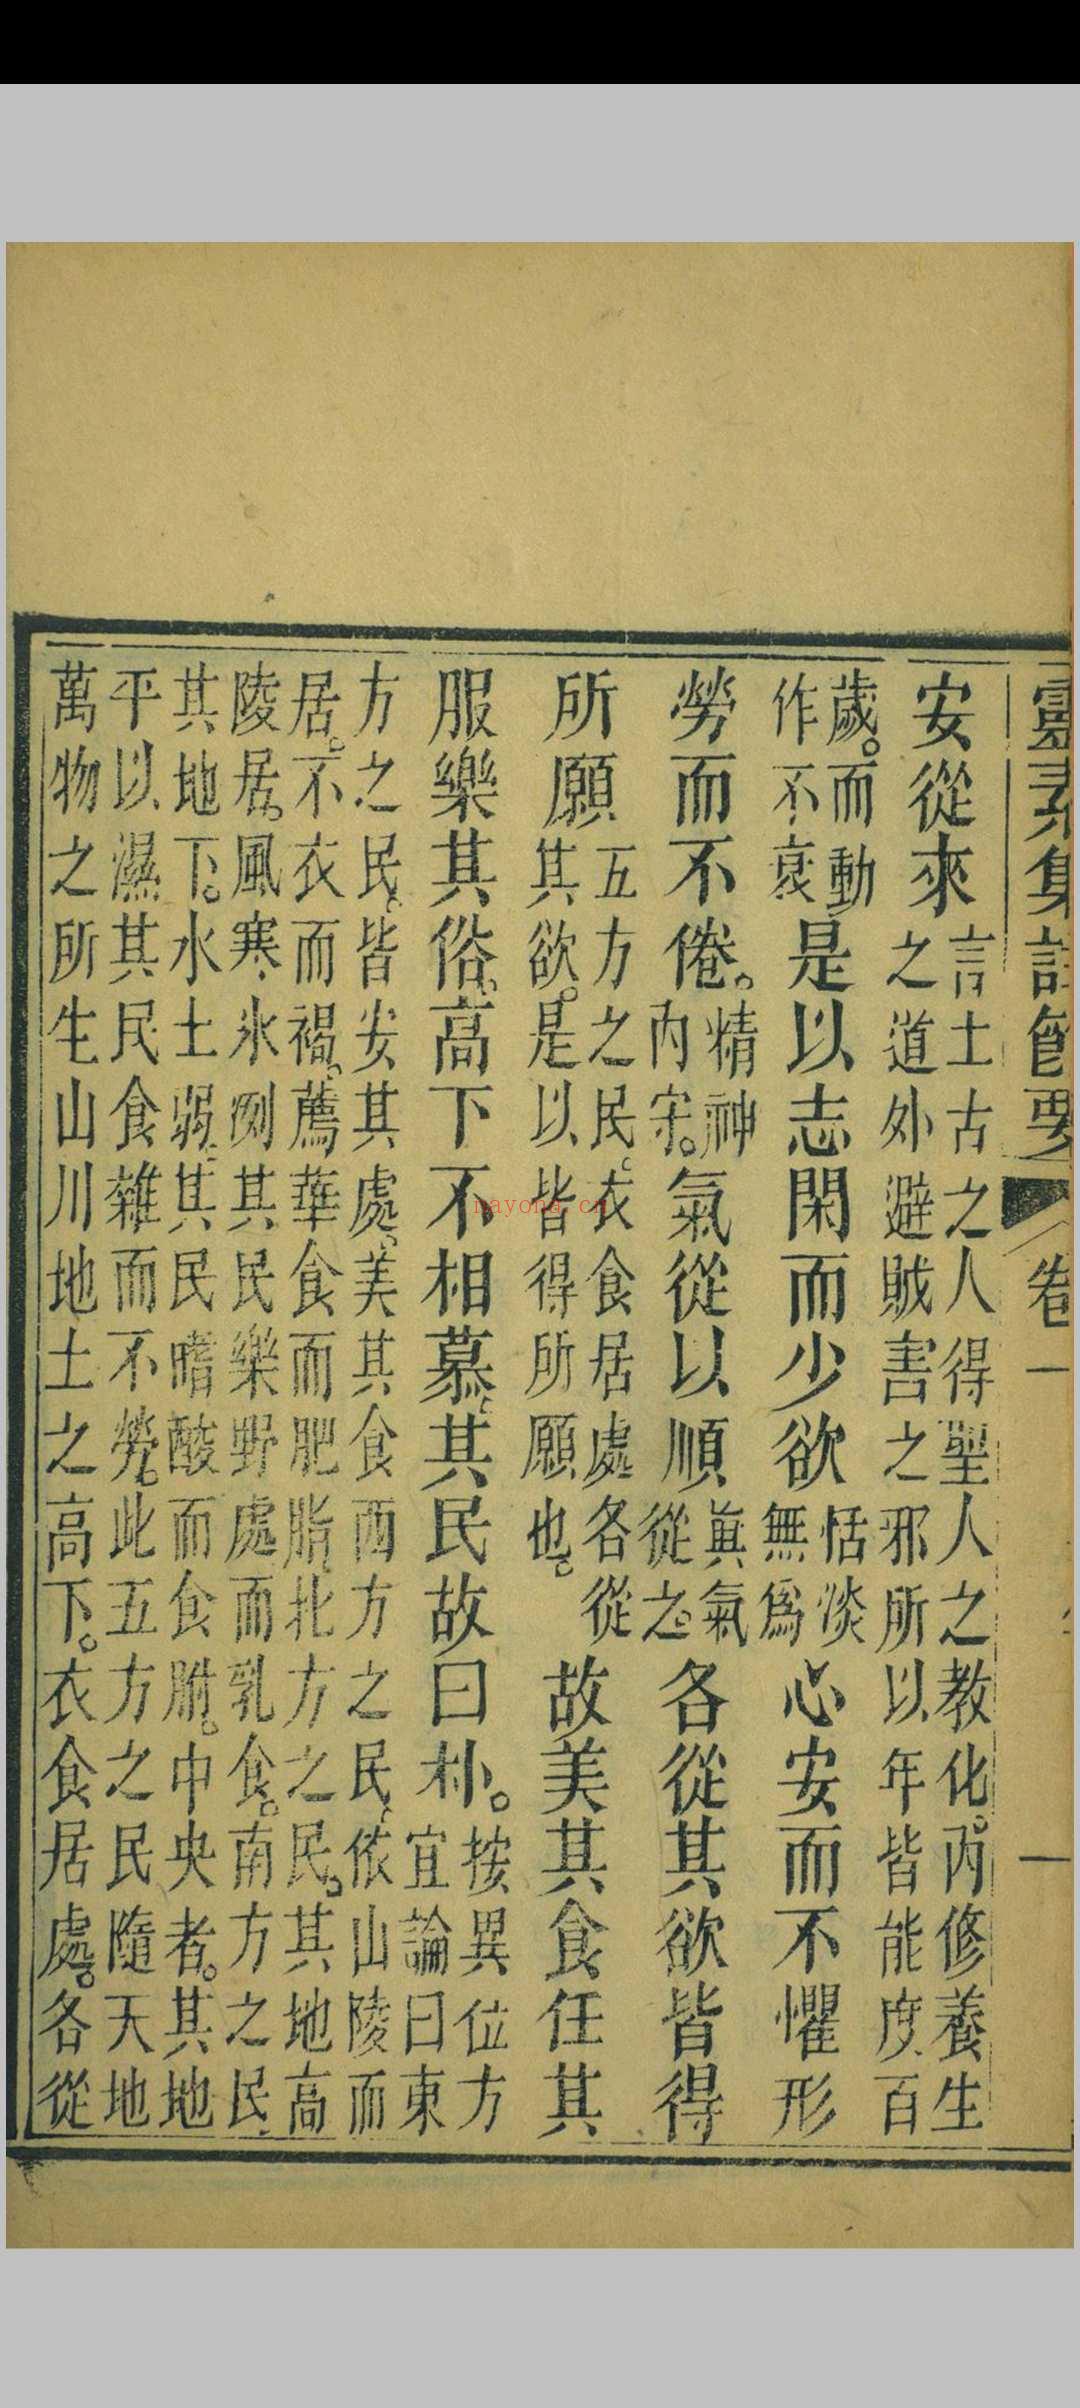 靈素集註節要 卷一 一
安從來言上古之人得聖人之教化。内修養生
之道外避賊害之邪所以年皆能度百
歲。而動
作不衰是以志閑而少欲恬淡
無爲心安而不懼形
勞而不倦。精神
内守。氣從以順眞氣
從之。各從其欲皆得
所願五方之民。衣食居處各從
其欲。是以皆得所願也。故美其食任其
服樂其俗。高下不相慕。其民故曰朴。按異位方
宜論曰東
方之民。皆安其處。美其食西方之民。依山陵而
居。不衣而褐。薦華食而肥脂。北方之民。其地高
陵居。風寒、氷冽其民樂野處而乳食。南方之民
其地下。水土弱。其民嗜酸而食胕。中央者。其地
平以濕其民食雜而不勞。此五方之民隨天地
萬物之所生山川地土之高下。衣食居處。各從
nayona.cn